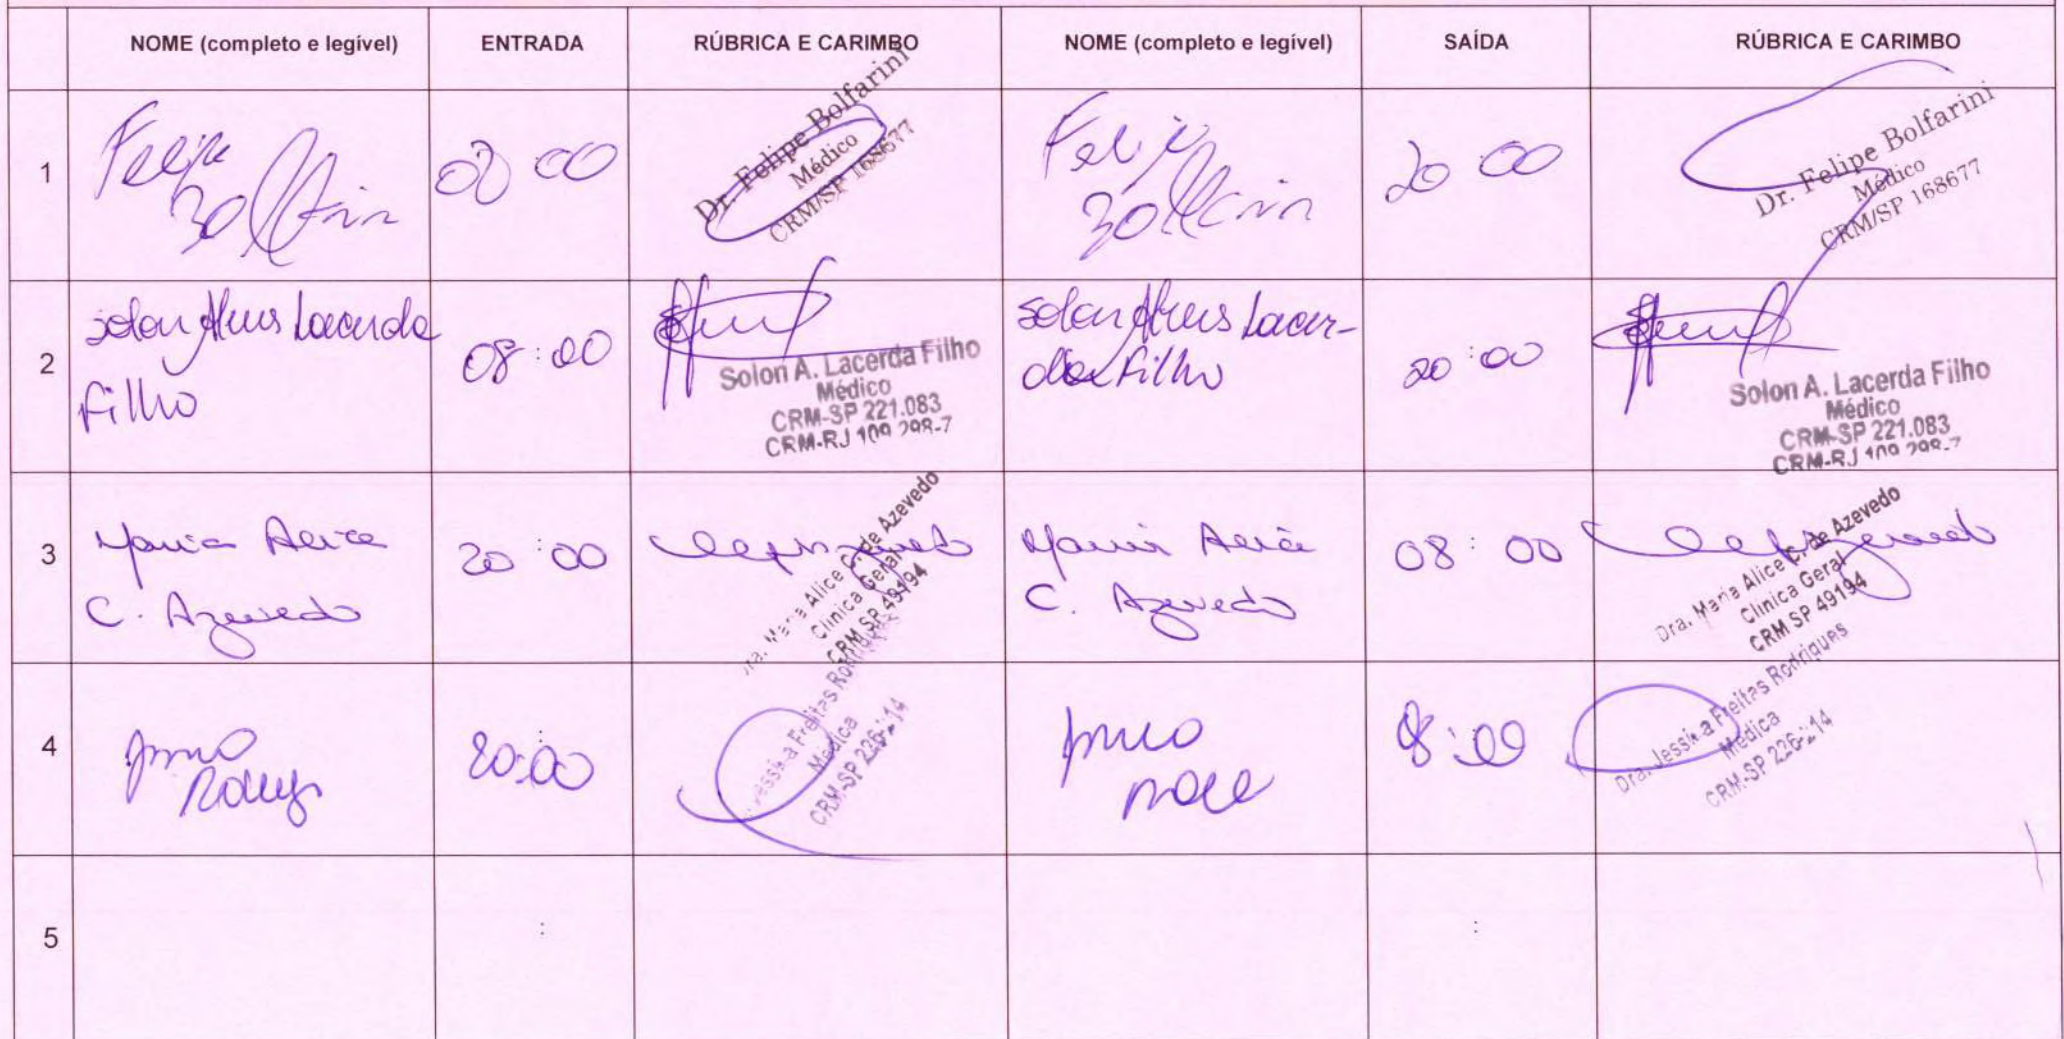 NOME (completo e legível) ENTRADA RÚBRICA E CARIMBO NOME (completo e legível) SAÍDA RÚBRICA E CARIMBO
1
Felipe
Bolfarini
08 00
Dr. Felipe Bolfarini
Médico
CRM/SP 168677
Felipe
Bolfarini
20 00
Dr. Felipe Bolfarini
Médico
CRM/SP 168677
2
Solon Alves Lacerda
Filho
08:00
Solon A. Lacerda Filho
Médico
CRM-SP 221.083
CRM-RJ 109 298-7
Solon Alves Lacer-
da Filho
20:00
Solon A. Lacerda Filho
Médico
CRM-SP 221.083
CRM-RJ 109 298-7
3
Maria Alice
C. Azevedo
20:00
Dra. Maria Alice C. de Azevedo
Clínica Geral
CRM SP 49194
Maria Alice
C. Azevedo
08:00
Dra. Maria Alice C. de Azevedo
Clínica Geral
CRM SP 49194
4
20:00
Jessica Freitas Rodrigues
Médica
CRM-SP
8:00
Dra. Jessica Freitas Rodrigues
Médica
CRM-SP
5
:
: